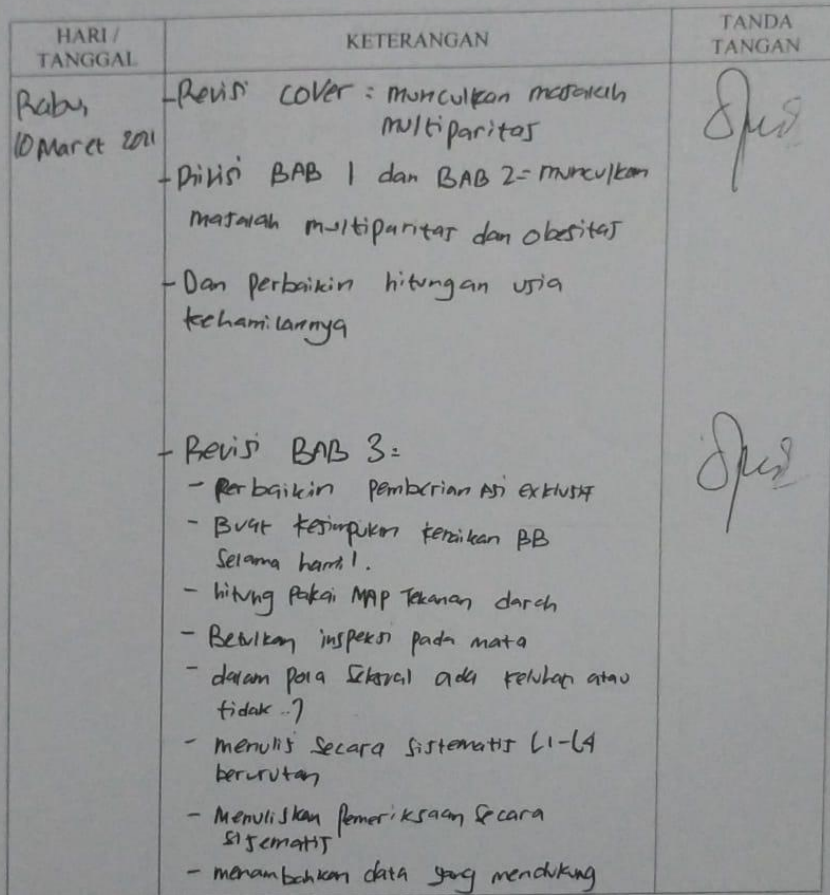 HARI /
TANGGAL
KETERANGAN
TANDA
TANGAN
Rabu,
10 Maret 2021
- Revisi cover : munculkan masalah
multiparitas
- Rivisi BAB 1 dan BAB 2 = munculkan
masalah multiparitas dan obesitas
- Dan perbaikin hitungan usia
kehamilannya
- Revisi BAB 3 =
- Perbaikin pemberian ASI exklusif
- Buat kesimpulan kenaikan BB
selama hamil.
- hitung pakai MAP Tekanan darah
- Betulkan inspeksi pada mata
- dalam pola seksual ada keluhan atau
tidak..?
- menulis secara sistematis L1-L4
berurutan
- Menuliskan pemeriksaan secara
sistematis
- menambahkan data yang mendukung